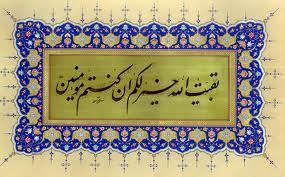 بقیت الله خیر لکم ان کنتم مؤمنین